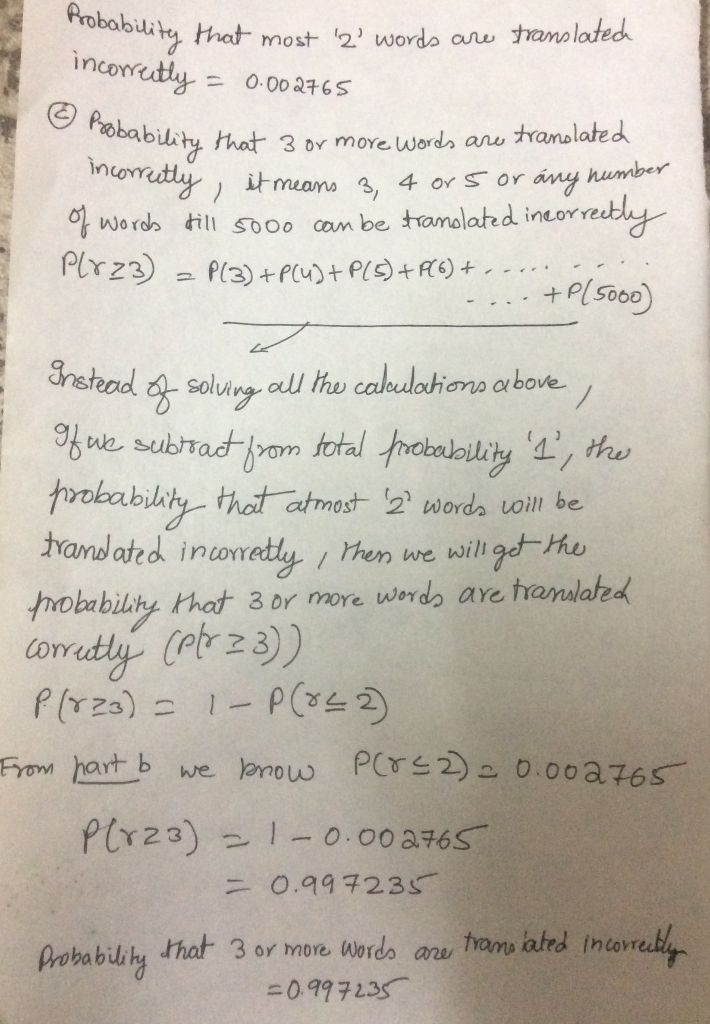 Probability that most '2' words are translated
incorrectly = 0.002765
(c) Probability that 3 or more words are translated
incorrectly, it means 3, 4 or 5 or any number
of words till 5000 can be translated incorrectly
P(r≥3) = P(3)+P(4)+P(5)+P(6)+ ..... ....
.... +P(5000)
Instead of solving all the calculations above,
If we subtract from total probability '1', the
probability that atmost '2' words will be
translated incorrectly, then we will get the
probability that 3 or more words are translated
correctly (P(r≥3))
P(r≥3) = 1 - P(r≤2)
From part b we know P(r≤2) = 0.002765
P(r≥3) = 1 - 0.002765
= 0.997235
Probability that 3 or more words are translated incorrectly
=0.997235